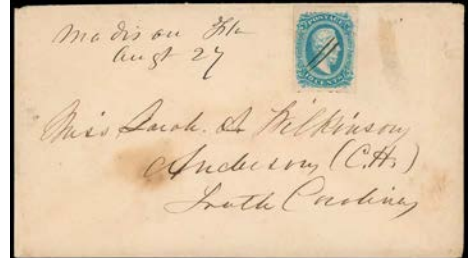 Madison Fla
Augt 27
POSTAGE
Miss Sarah. A Wilkinson
Anderson (C.H.)
South Carolina